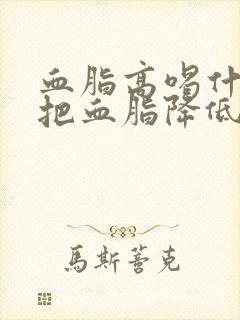 血脂高喝什
把血脂降低
馬斯善克